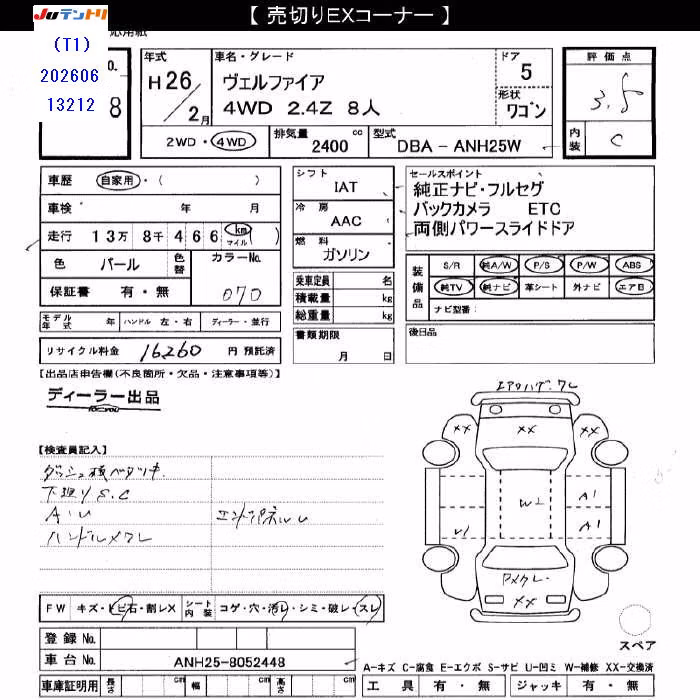 【 売切りEXコーナー 】
JUテントリ
(T1)
202606
13212
応用紙
No.
8
年式
H 26 / 2 月
車名・グレード
ヴェルファイア
4WD 2.4Z 8人
ドア
5
形状
ワゴン
評価点
3.5
内装
C
2WD・4WD
排気量
2400 cc
型式
DBA - ANH25W
車歴 自家用・( )
車検 年 月
走行 13万 8千 466 km マイル ( )
色 パール 色替 カラーNo.
保証書 有・無 070
シフト
IAT
冷房
AAC
燃料
ガソリン
乗車定員 名
積載量 kg
総重量 kg
書類期限
月 日
セールスポイント
純正ナビ・フルセグ
バックカメラ ETC
両側パワースライドドア
装備品
S/R 純A/W P/S P/W ABS
純TV 純ナビ 革シート 外ナビ エアB
ナビ型番:
後日品
モデル年式 年 ハンドル 左・右 ディーラー・並行
リサイクル料金 16260 円 預託済
【出品店申告欄(不良箇所・欠品・注意事項等)】
ディーラー出品
【検査員記入】
下廻りS.C
A・U
エンドパネルU
ハンドルスレ
XX XX XX
W2
A1
A1
U1
XX
FW キズ・トビ石・割レX シート内装 コゲ・穴・汚レ・シミ・破レ・スレ
スペア
登録 No.
車台 No. ANH25-8052448
車庫証明用 長さ cm 幅 cm 高さ cm
A-キズ C-腐食 E-エクボ S-サビ U-凹ミ W-補修 XX-交換済
工具 有・無 ジャッキ 有・無